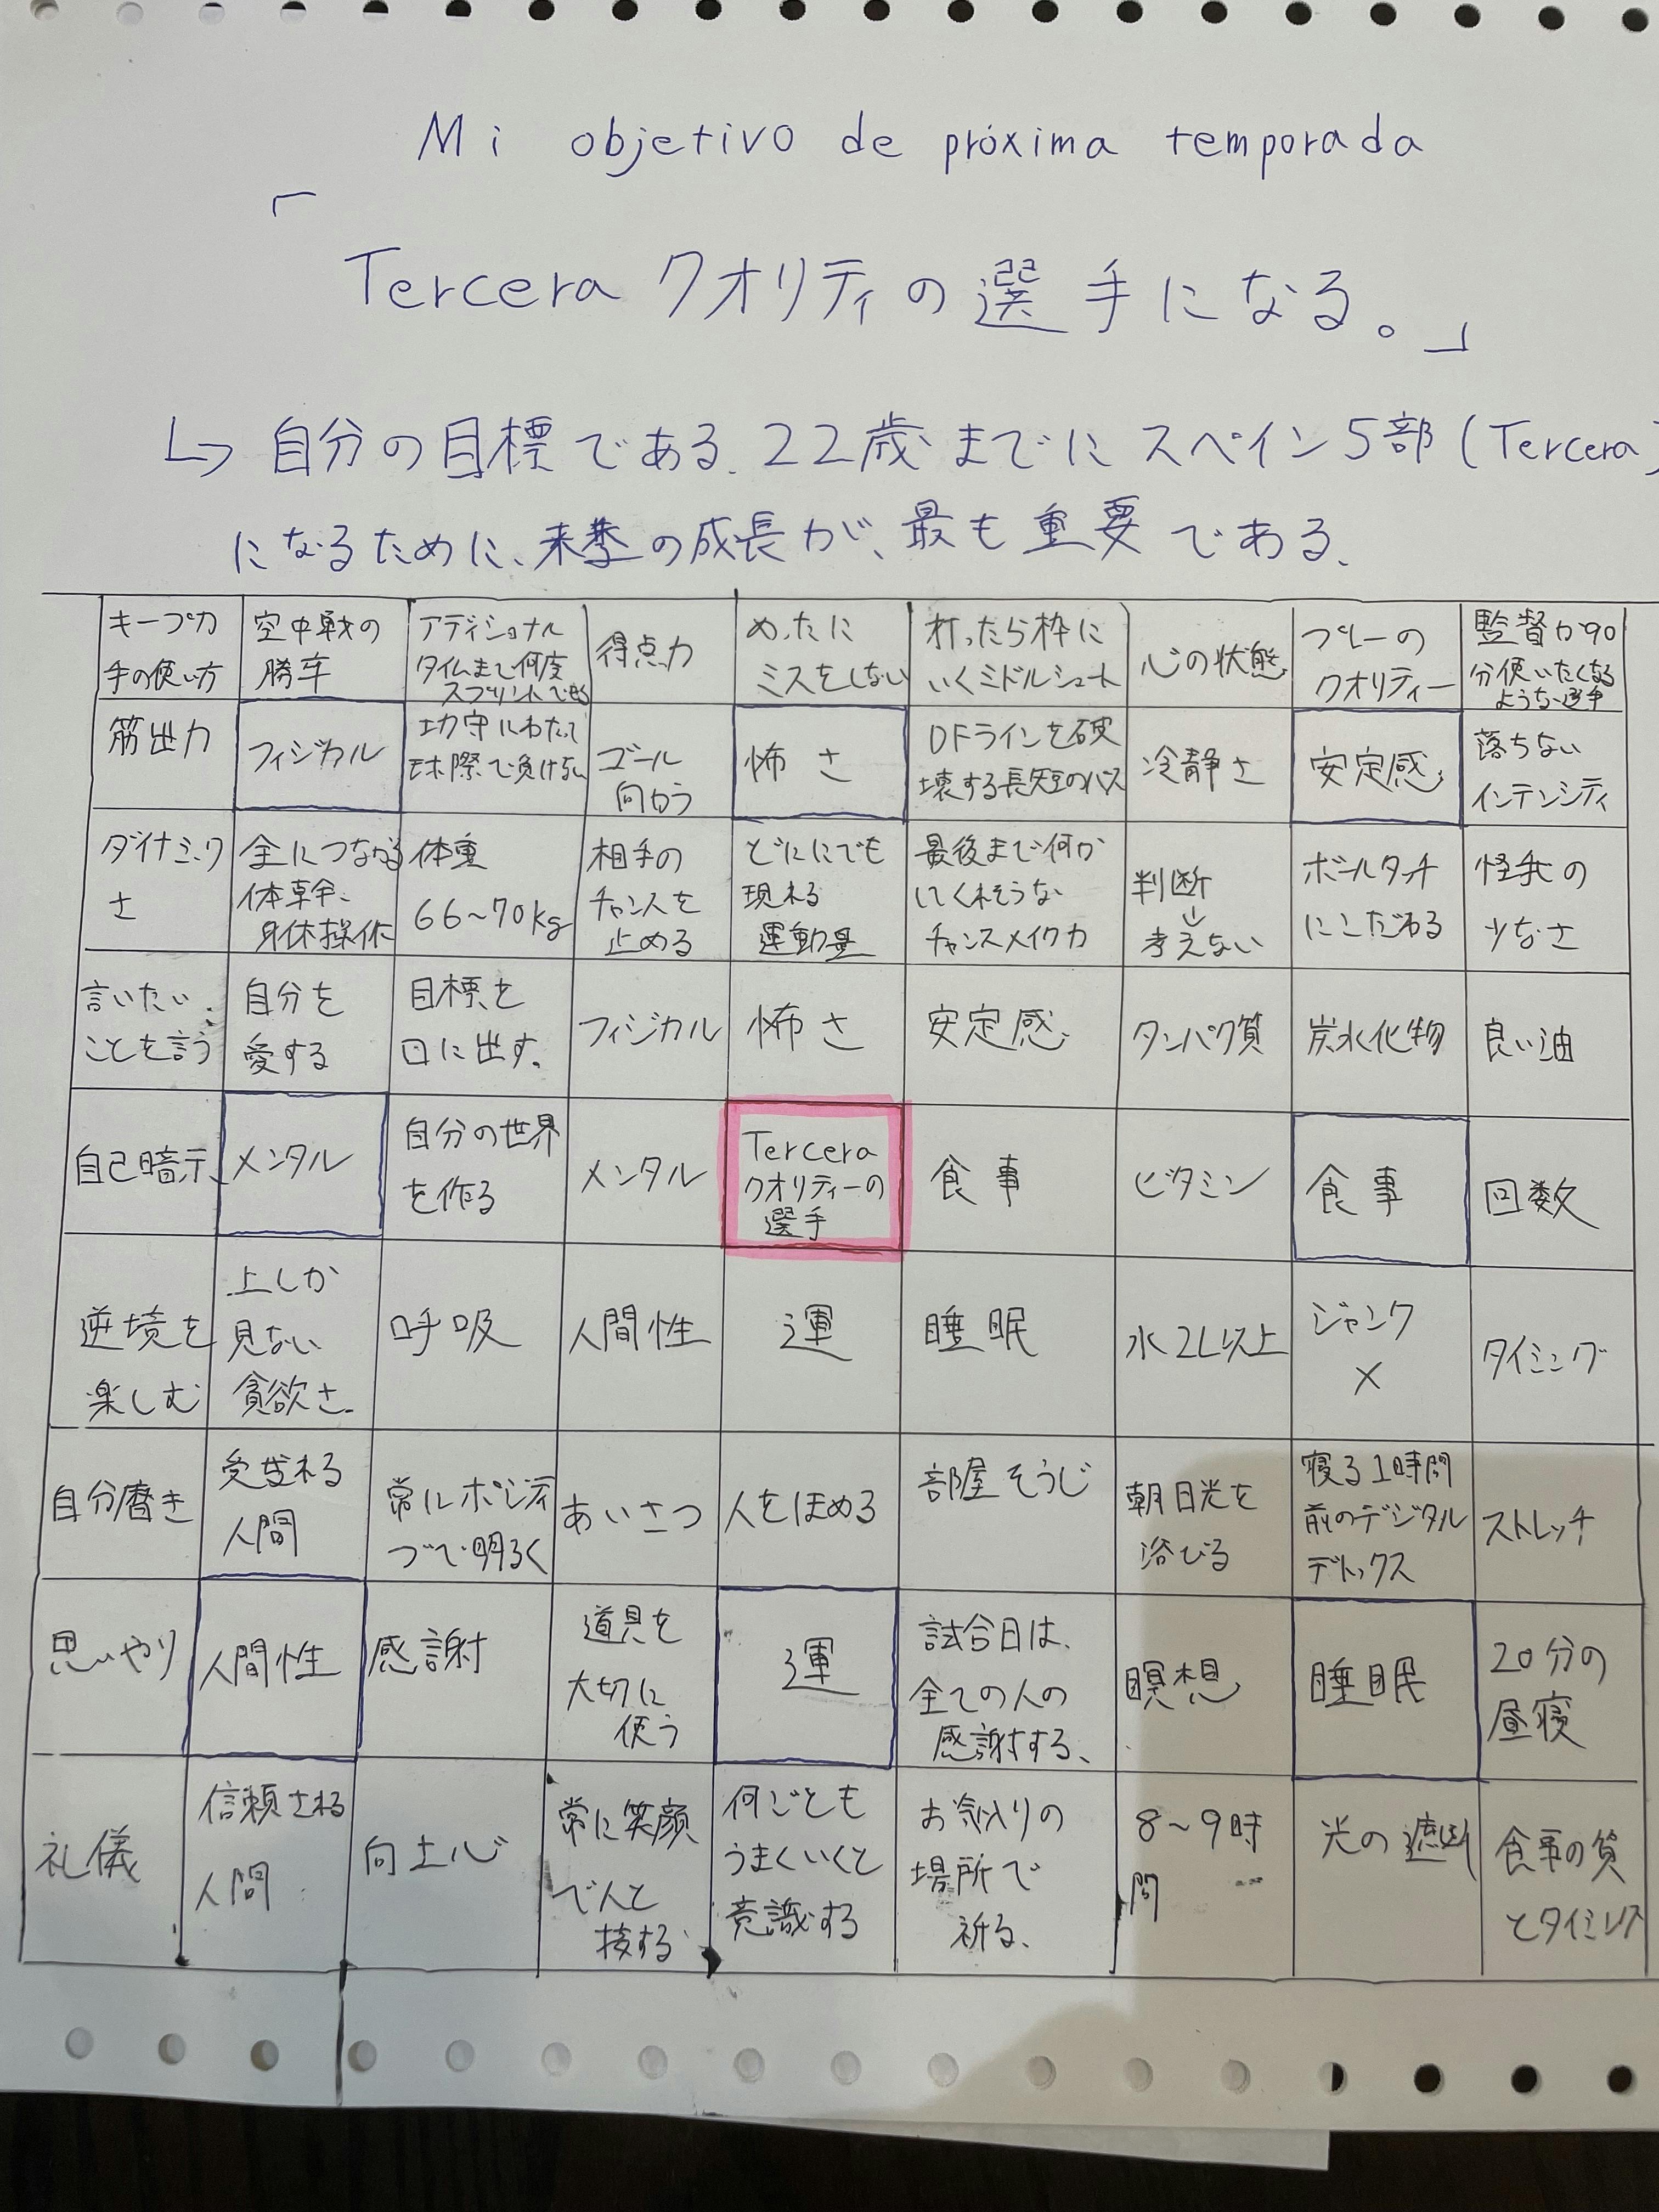 Mi objetivo de próxima temporada
「
Terceraクオリティの選手になる。」
↳ 自分の目標である.22歳までにスペイン5部(Tercera)
になるために、来季の成長が、最も重要である.
キープ力
手の使い方
空中戦の
勝率
アディショナル
タイムまで何度
スプリントできる
得点力
めったに
ミスをしない
打ったら枠に
いくミドルシュート
心の状態
プレーの
クオリティー
監督が90
分使いたくなる
ような選手
筋出力
フィジカル
攻守にわたって
球際で負けない
ゴール
向かう
怖さ
DFラインを破
壊する長短のパス
冷静さ
安定感
落ちない
インテンシティ
ダイナミック
さ
全につながる
体幹、
身体操作
体重
66~70kg
相手の
チャンスを
止める
どこにでも
現れる
運動量
最後まで何か
してくれそうな
チャンスメイク力
判断
↓
考えない
ボールタッチ
にこだわる
怪我の
少なさ
言いたい
ことを言う
自分を
愛する
目標を
口に出す.
フィジカル
怖さ
安定感
タンパク質
炭水化物
良い油
自己暗示
メンタル
自分の世界
を作る
メンタル
Tercera
クオリティーの
選手
食事
ビタミン
食事
回数
逆境を
楽しむ
上しか
見ない
貪欲さ
呼吸
人間性
運
睡眠
水2L以上
ジャンク
×
タイミング
自分磨き
愛される
人間
常にポジティ
ブで明るく
あいさつ
人をほめる
部屋そうじ
朝日光を
浴びる
寝る1時間
前のデジタル
デトックス
ストレッチ
思いやり
人間性
感謝
道具を
大切に
使う
運
試合日は、
全ての人の
感謝する、
瞑想
睡眠
20分の
昼寝
礼儀
信頼される
人間
向上心
常に笑顔
で人と
接する
何ごとも
うまくいくと
意識する
お気入りの
場所で
祈る、
8~9時
間
光の遮断
食事の質
とタイミング